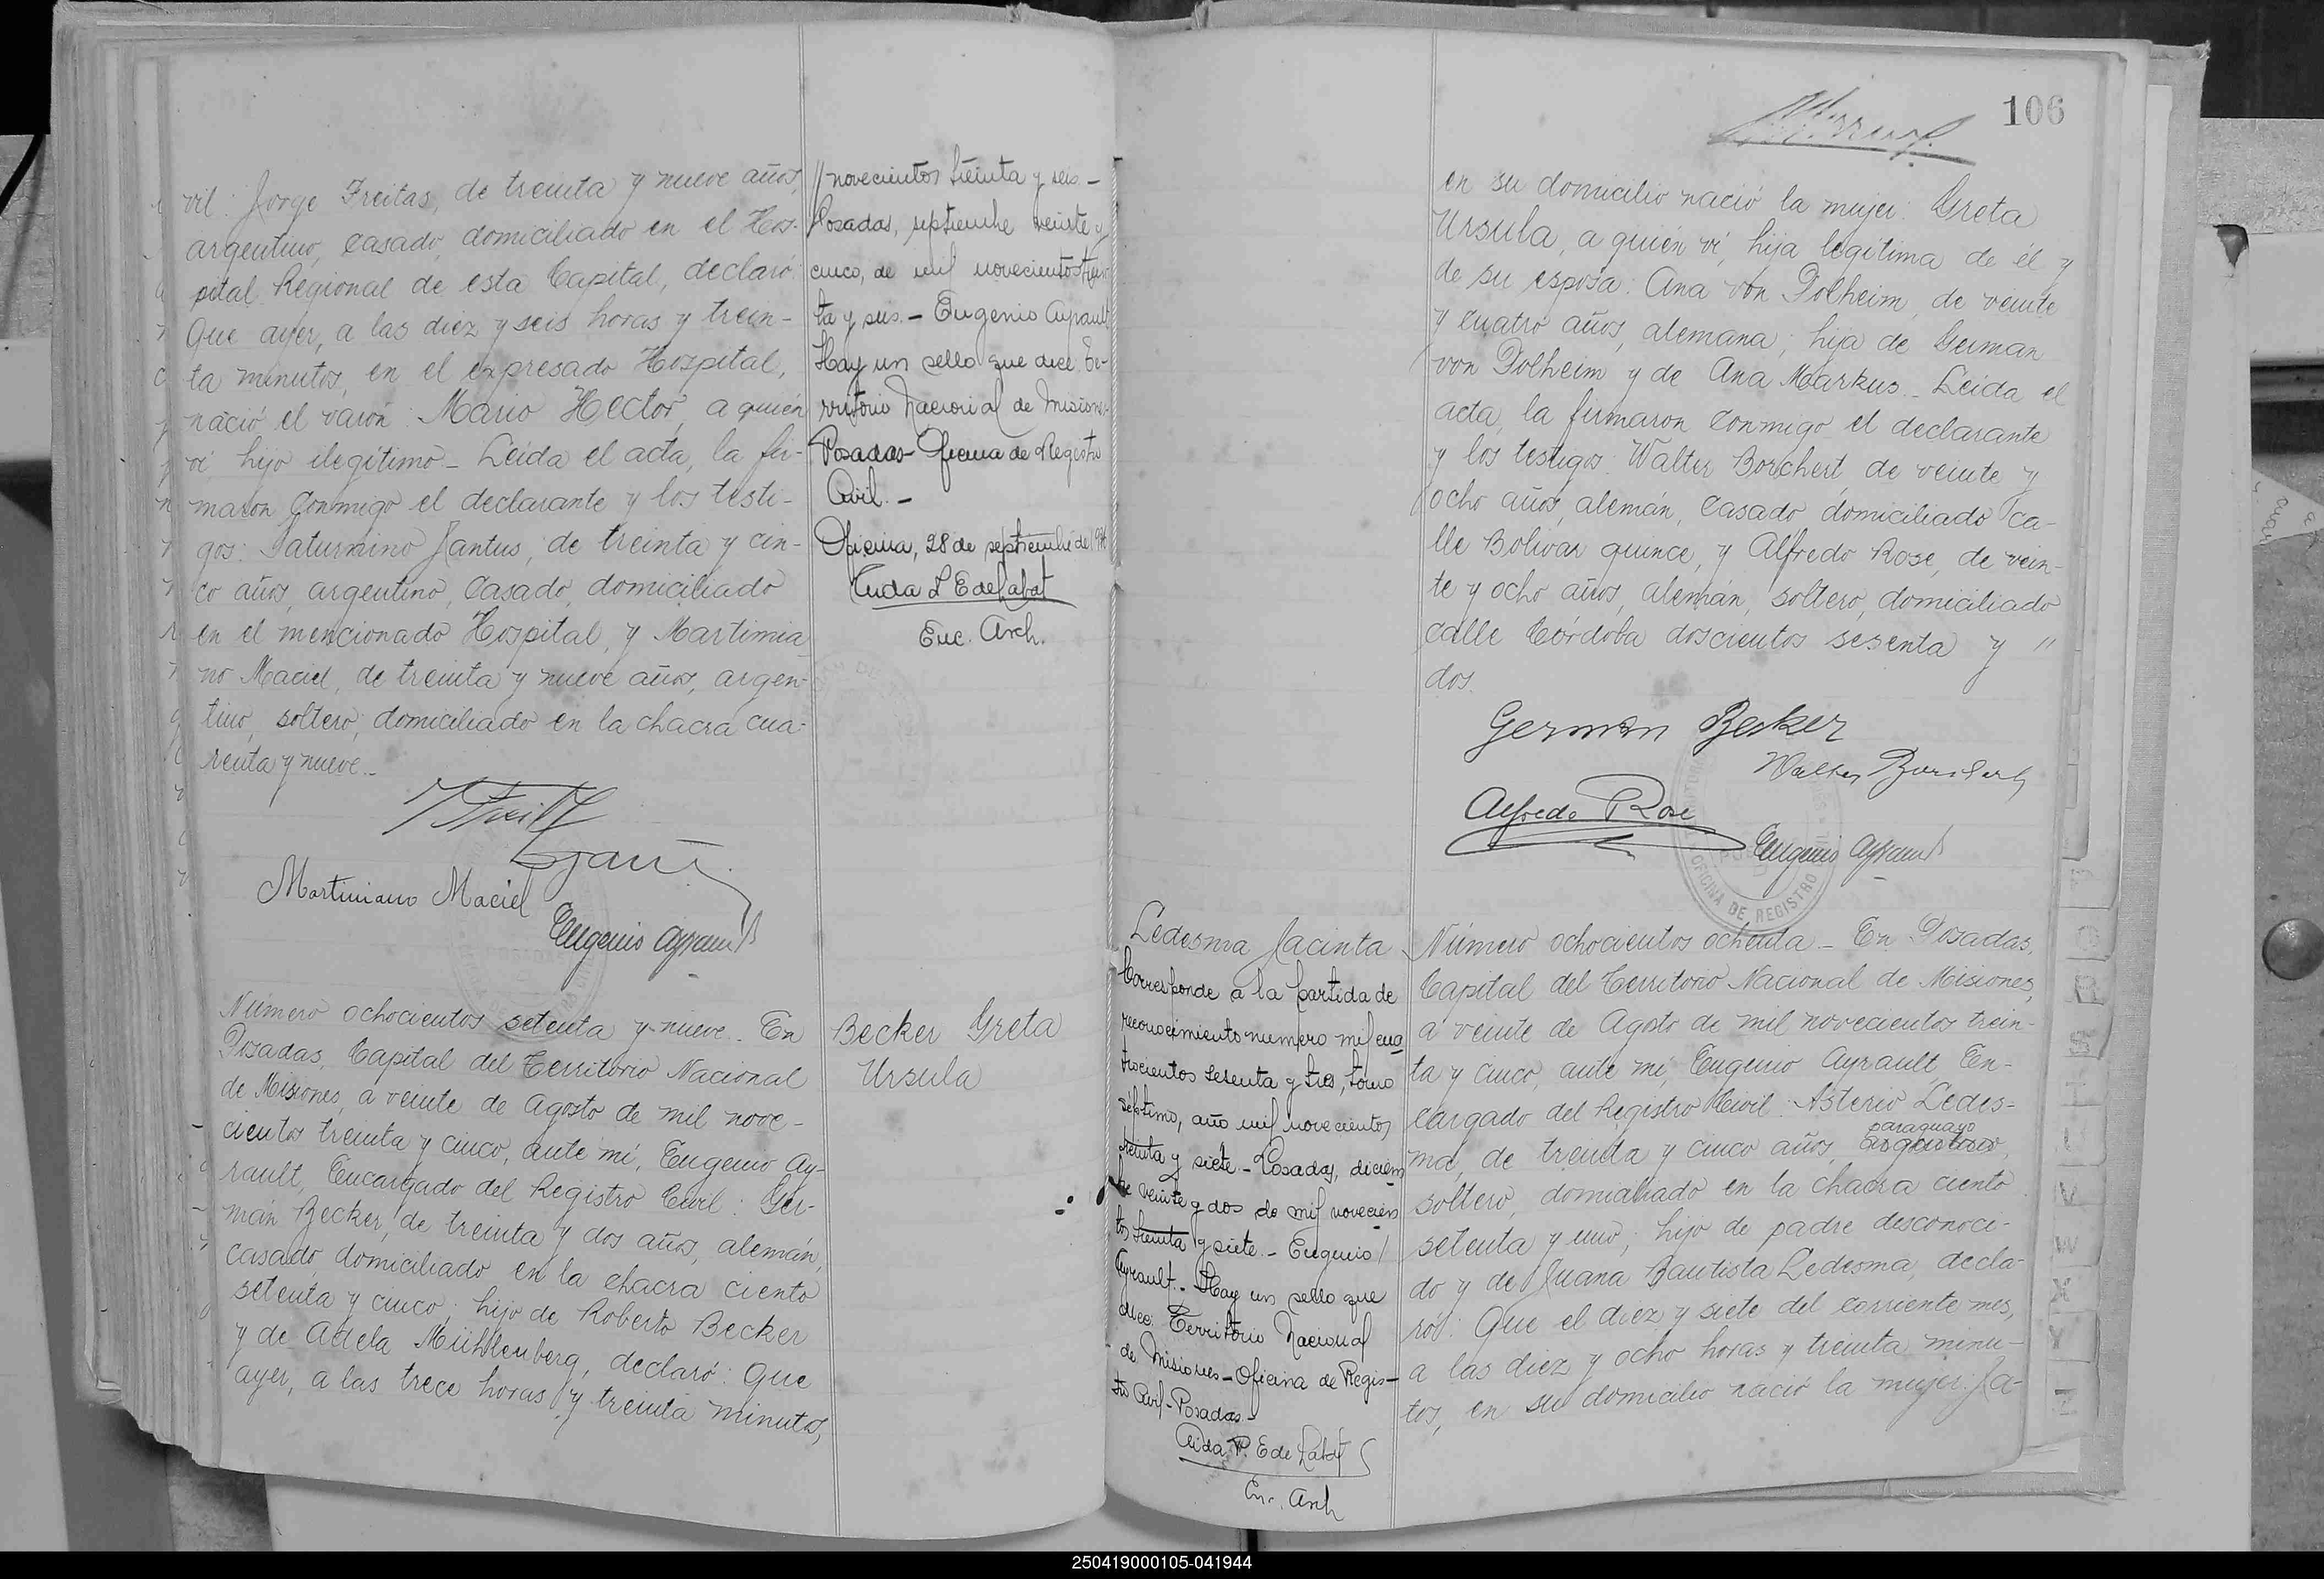 vil: Jorge Freitas, de treinta y nueve años,
argentino, casado, domiciliado en el Hos-
pital Regional de esta Capital, declaró:
Que ayer, a las diez y seis horas y trein-
ta minutos, en el expresado Hospital,
nació el varón: Mario Hector, a quién
vi, hijo ilegítimo_ Leida el acta, la fir-
maron conmigo el declarante y los testi-
gos: Saturnino Jantus, de treinta y cin-
co años, argentino, casado, domiciliado
en el mencionado Hospital, y Martimia
no Maciel, de treinta y nueve años, argen-
tino, soltero, domiciliado en la chacra cua-
renta y nueve._
Martiniano Maciel
Eugenio Ayrault
// novecientos treinta y seis.-
Posadas, septiembre veinte y
cinco, de mil novecientos trein
ta y seis.- Eugenio Ayrault
Hay un sello que dice: Te-
rritorio Nacional de Misiones-
Posadas- Oficina de Registro
Civil.-
Oficina, 28 de septiembre de 1936
Enc. Arch.
Número ochocientos setenta y nueve._ En
Posadas, Capital del Territorio Nacional
de Misiones, a veinte de Agosto de mil nove-
cientos treinta y cinco, ante mi, Eugenio Ay-
rault, Encargado del Registro Civil: Ger-
mán Becker, de treinta y dos años, alemán,
casado, domiciliado en la chacra ciento
setenta y cinco; hijo de Roberto Becker
y de Adela Mühlenberg, declaró: Que
ayer, a las trece horas y treinta minutos,
Becker Greta
Ursula
106
en su domicilio nació la mujer: Greta
Ursula, a quién vi, hija legítima de él y
de su esposa: Ana von Polheim, de veinte
y cuatro años, alemana; hija de German
von Polheim y de Ana Markus._ Leida el
acta, la firmaron conmigo el declarante
y los testigos: Walter Borchert de veinte y
ocho años, alemán, casado domiciliado ca-
lle Bolívar quince, y Alfredo Rose, de vein-
te y ocho años, alemán, soltero, domiciliado
calle Córdoba doscientos sesenta y //
dos.
German Becker
Walter Borchert
Alfredo Rose
Eugenio Ayrault
OFICINA DE REGISTRO
Ledesma Jacinta
Corresponde a la partida de
reconocimiento numero mil cua
trocientos sesenta y tres, tomo
séptimo, año mil novecientos
treinta y siete.- Posadas, diciem
bre veinte y dos de mil novecien
tos treinta y siete.- Eugenio
Ayrault.- Hay un sello que
dice: Territorio Nacional
de Misiones- Oficina de Regis-
tro Civil- Posadas.-
Enc. Arch
Número ochocientos ochenta_ En Posadas,
Capital del Territorio Nacional de Misiones,
a veinte de Agosto de mil novecientos trein-
ta y cinco, ante mi, Eugenio Ayrault, En-
cargado del Registro Civil: Asterio Ledes-
paraguayo
ma, de treinta y cinco años, argentino,
soltero, domiciliado en la chacra ciento
setenta y uno; hijo de padre desconoci-
do y de Juana Bautista Ledesma, decla-
ró: Que el diez y siete del corriente mes,
a las diez y ocho horas y treinta minu-
tos, en su domicilio nació la mujer: Ja-
250419000105-041944